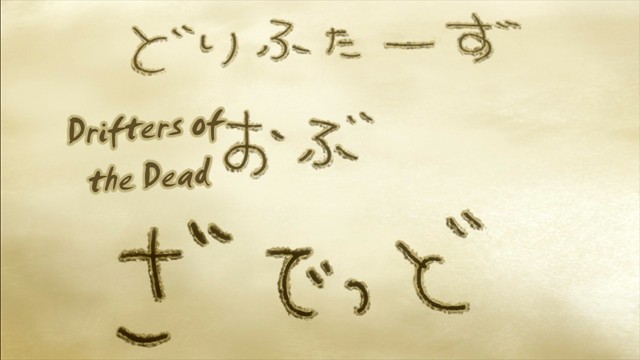 どりふたーず
Drifters of
the Dead
おぶ
ざでっど